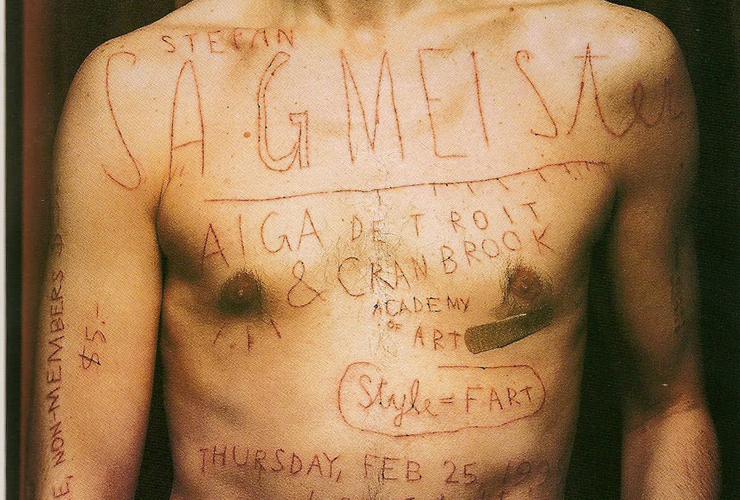 STEFAN
SAGMEISter
AIGA DETROIT
& CRANBROOK
ACADEMY
OF
ART
Style=FART
THURSDAY, FEB 25, 199
NON-MEMBERS
$5.-